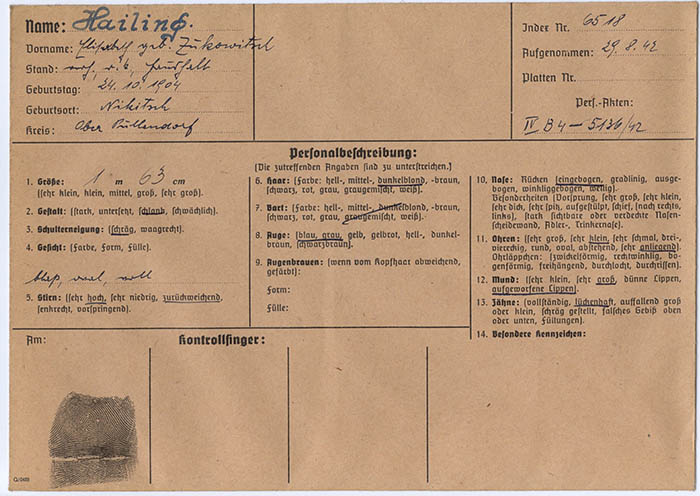 Name: Hailing.
Vorname: Elisabeth geb. Zukowitsch
Stand: verh., r.k., Haushalt
Geburtstag: 24. 10. 1904
Geburtsort: Nikitsch
Kreis: Ober Pullendorf
Index Nr. 6518
Aufgenommen: 29. 8. 42
Platten Nr.
Pers.-Akten:
IV B 4 – 5136/42
Personalbeschreibung:
[Die zutreffenden Angaben sind zu unterstreichen.]
1. Größe: 1 m 63 cm
(sehr klein, klein, mittel, groß, sehr groß).
2. Gestalt: (stark, untersetzt, schlank, schwächlich).
3. Schulterneigung: (schräg, waagrecht).
4. Gesicht: (Farbe, Form, Fülle).
blaß, oval, voll
5. Stirn: (sehr hoch, sehr niedrig, zurückweichend,
senkrecht, vorspringend).
6. Haar: (Farbe: hell-, mittel-, dunkelblond, -braun,
schwarz, rot, grau, graugemischt, weiß).
7. Bart: (Farbe: hell-, mittel-, dunkelblond, -braun,
schwarz, rot, grau, graugemischt, weiß).
8. Auge: (blau, grau, gelb, gelbrot, hell-, dunkel-
braun, schwarzbraun).
9. Augenbrauen: (wenn vom Kopfhaar abweichend,
gefärbt):
Form:
Fülle:
10. Nase: Rücken (eingebogen, gradlinig, ausge-
bogen, winkliggebogen, wellig).
Besonderheiten (Vorsprung, sehr groß, sehr klein,
sehr dick, sehr spitz, aufgestülpt, schief, (nach rechts,
links), stark sichtbare oder verdeckte Nasen-
scheidewand, Adler-, Trinkernase).
11. Ohren: (sehr groß, sehr klein, sehr schmal, drei-
viereckig, rund, oval, abstehend, sehr anliegend).
Ohrläppchen: (zwickelförmig, rechtwinklig, bo-
genförmig, freihängend, durchlocht, durchrissen).
12. Mund: (sehr klein, sehr groß, dünne Lippen,
aufgeworfene Lippen).
13. Zähne: (vollständig, lückenhaft, auffallend groß
oder klein, schräg gestellt, falsches Gebiß oben
oder unten, Füllungen).
14. Besondere Kennzeichen:
Am:
Kontrollfinger: